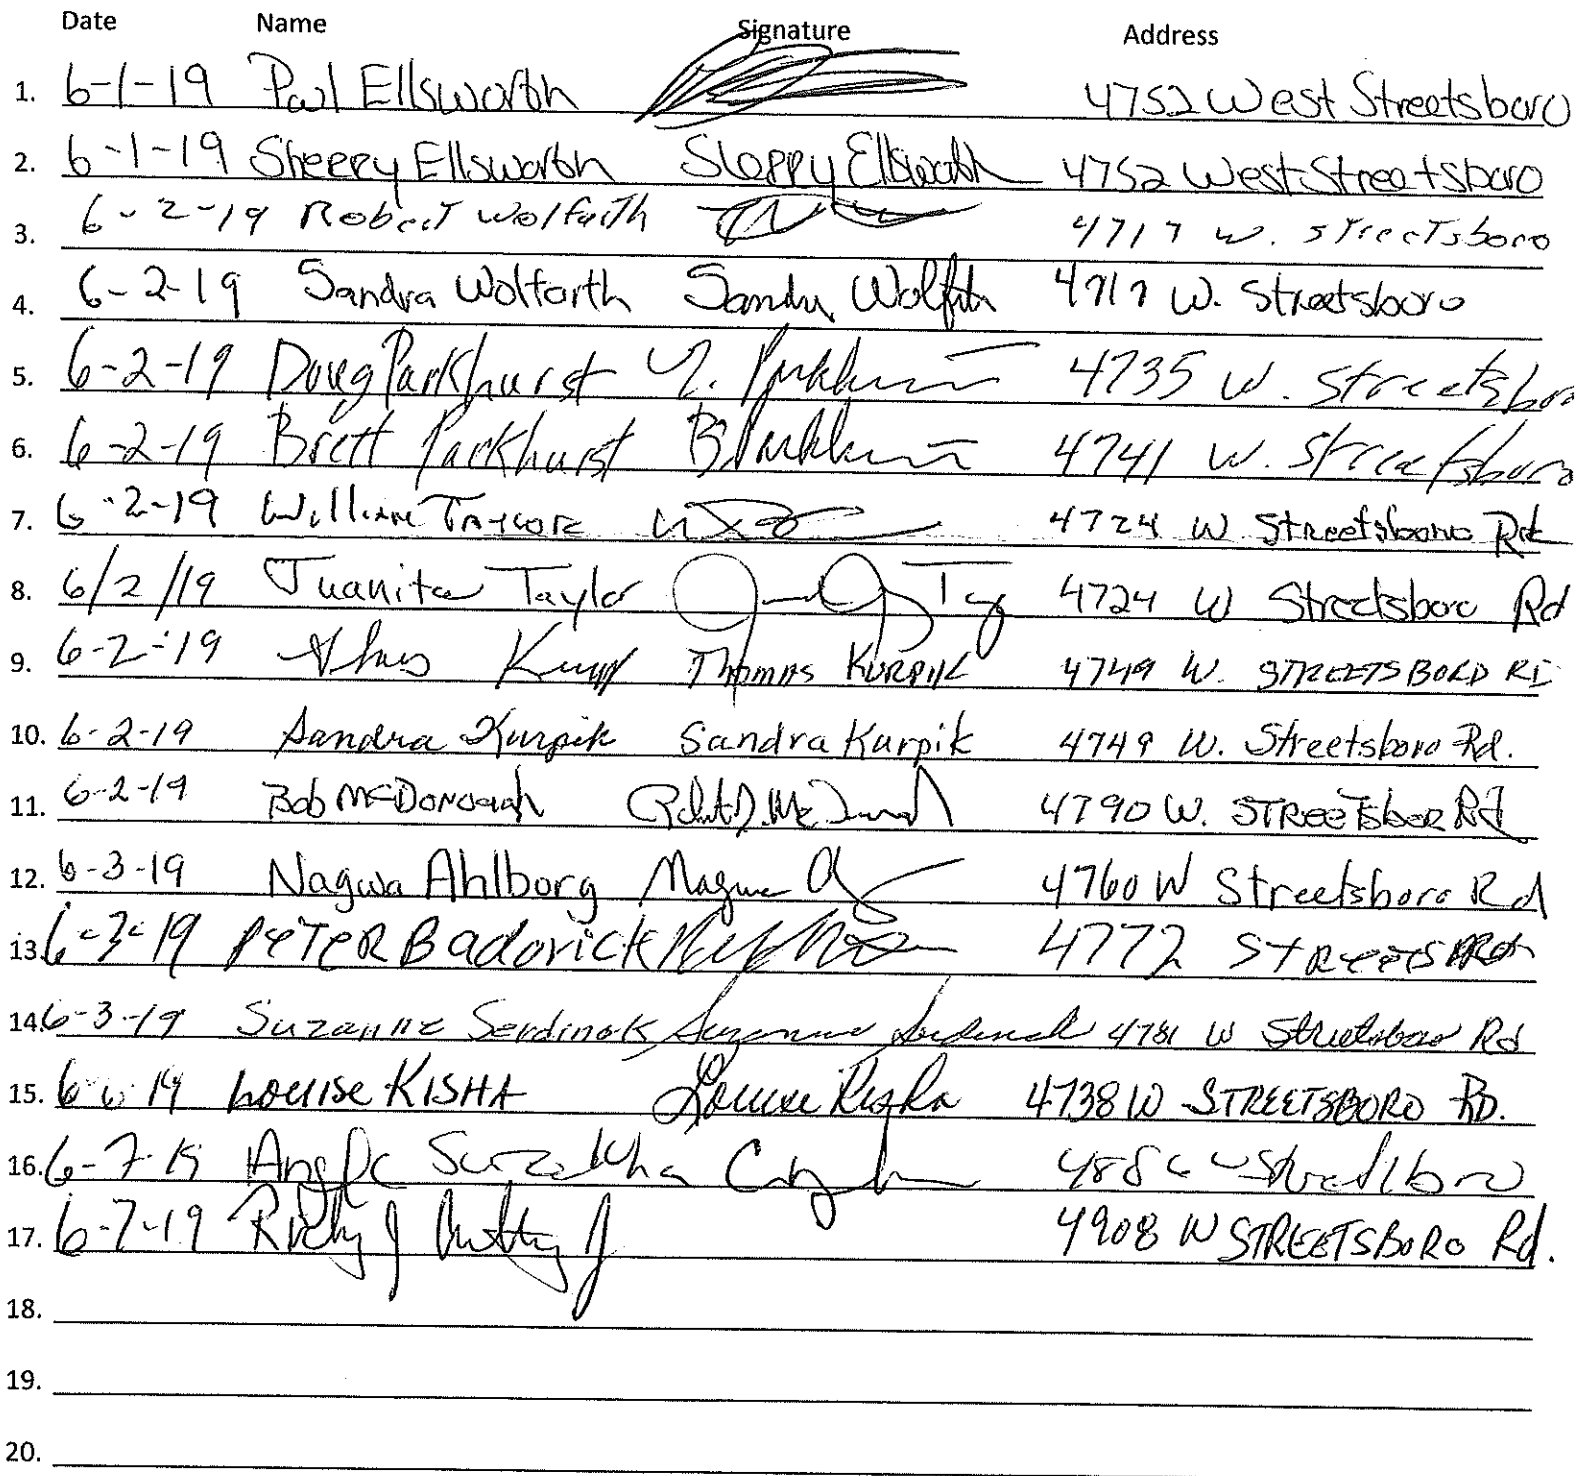 Date Name Signature Address
1. 6-1-19 Paul Ellsworth 4752 West Streetsboro
2. 6-1-19 Sherry Ellsworth Sherry Ellsworth 4752 West Streetsboro
3. 6-2-19 Robert Wolfarth 4717 W. Streetsboro
4. 6-2-19 Sandra Wolfarth Sandra Wolfarth 4717 W. Streetsboro
5. 6-2-19 Doug Parkhurst Parkhurst 4735 W. Streetsboro
6. 6-2-19 Brett Parkhurst B. Parkhurst 4741 W. Streetsboro
7. 6-2-19 William Taylor 4724 W Streetsboro Rd
8. 6/2/19 Juanita Taylor 4724 W Streetsboro Rd
9. 6-2-19 Thomas KURPIK 4749 W. STREETSBORO RD
10. 6-2-19 Sandra Kurpik Sandra Kurpik 4749 W. Streetsboro Rd.
11. 6-2-19 Bob McDonough 4790 W. STREETSboro Rd
12. 6-3-19 Nagwa Ahlborg Nagwa 4760 W Streetsboro Rd
13. 6-3-19 PETER Badovick 4772
14. 6-3-19 Suzanne Serdinak Suzanne Serdinak 4781 W Streetsboro Rd
15. 6 19 Louise KISHA Louise Kisha 4738 W STREETSBORO RD.
16. 6-7-19
17. 6-7-19 4908 W STREETSBORO Rd.
18.
19.
20.